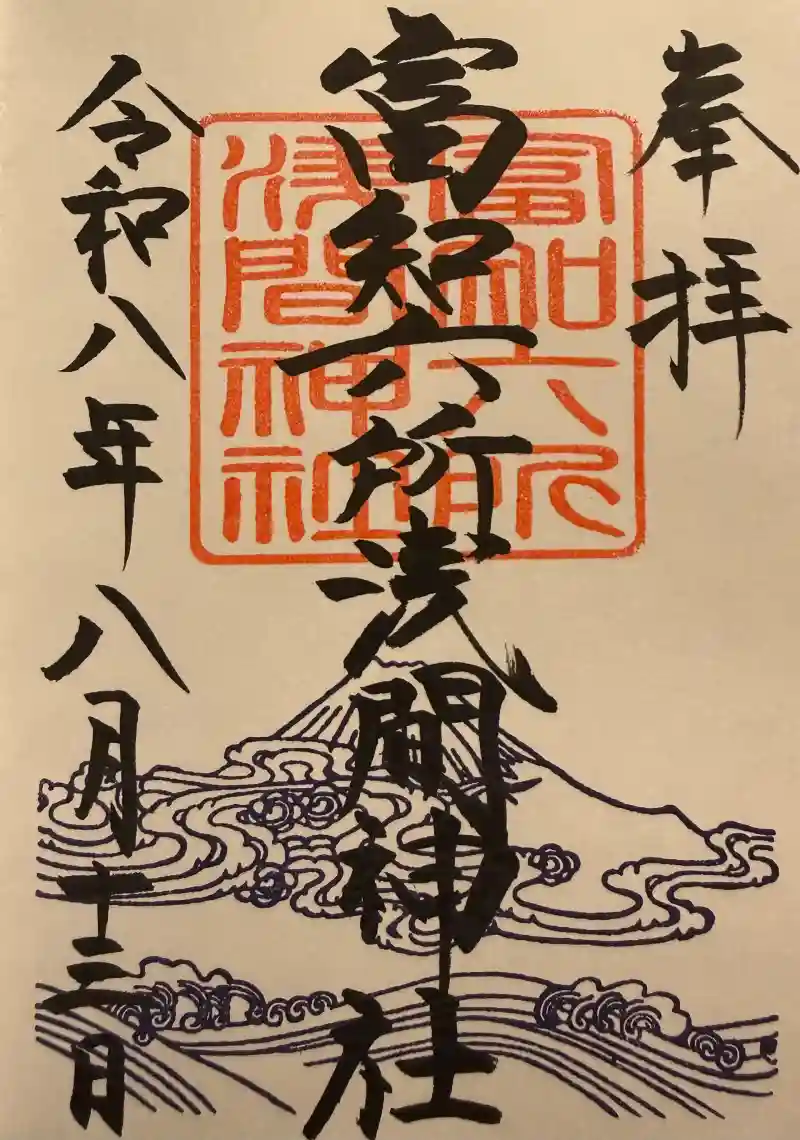 奉拝
富知六所浅間神社
富知六所
浅間神社
令和八年八月十三日